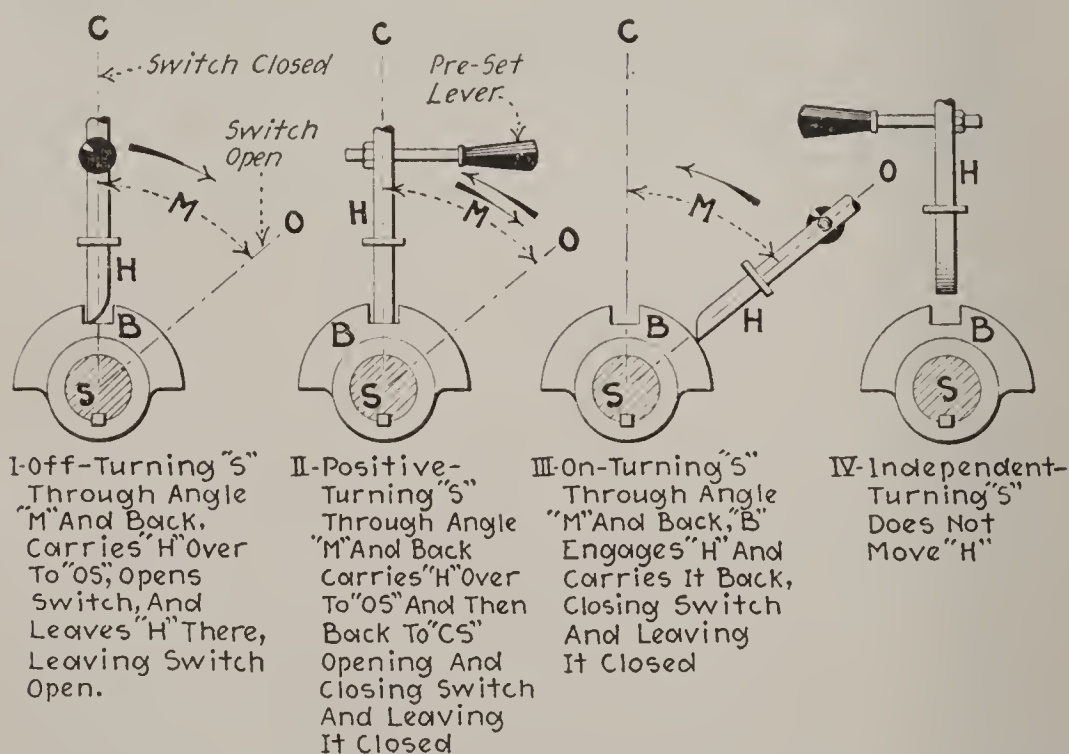 C
Switch Closed
Switch
Open
M
O
H
B
S
C
Pre-Set
Lever.
H
M
O
B
S
C
M
O
B
H
S
H
B
S
I-Off-Turning "S"
Through Angle
"M" And Back.
Carries "H" Over
To "OS", Opens
Switch, And
Leaves "H" There,
Leaving Switch
Open.
II-Positive-
Turning "S"
Through Angle
"M" And Back
Carries "H" Over
To "OS" And Then
Back To "CS"
Opening And
Closing Switch
And Leaving
It Closed
III-On-Turning "S"
Through Angle
"M" And Back, "B"
Engages "H" And
Carries It Back,
Closing Switch
And Leaving
It Closed
IV-Independent-
Turning "S"
Does Not
Move "H"